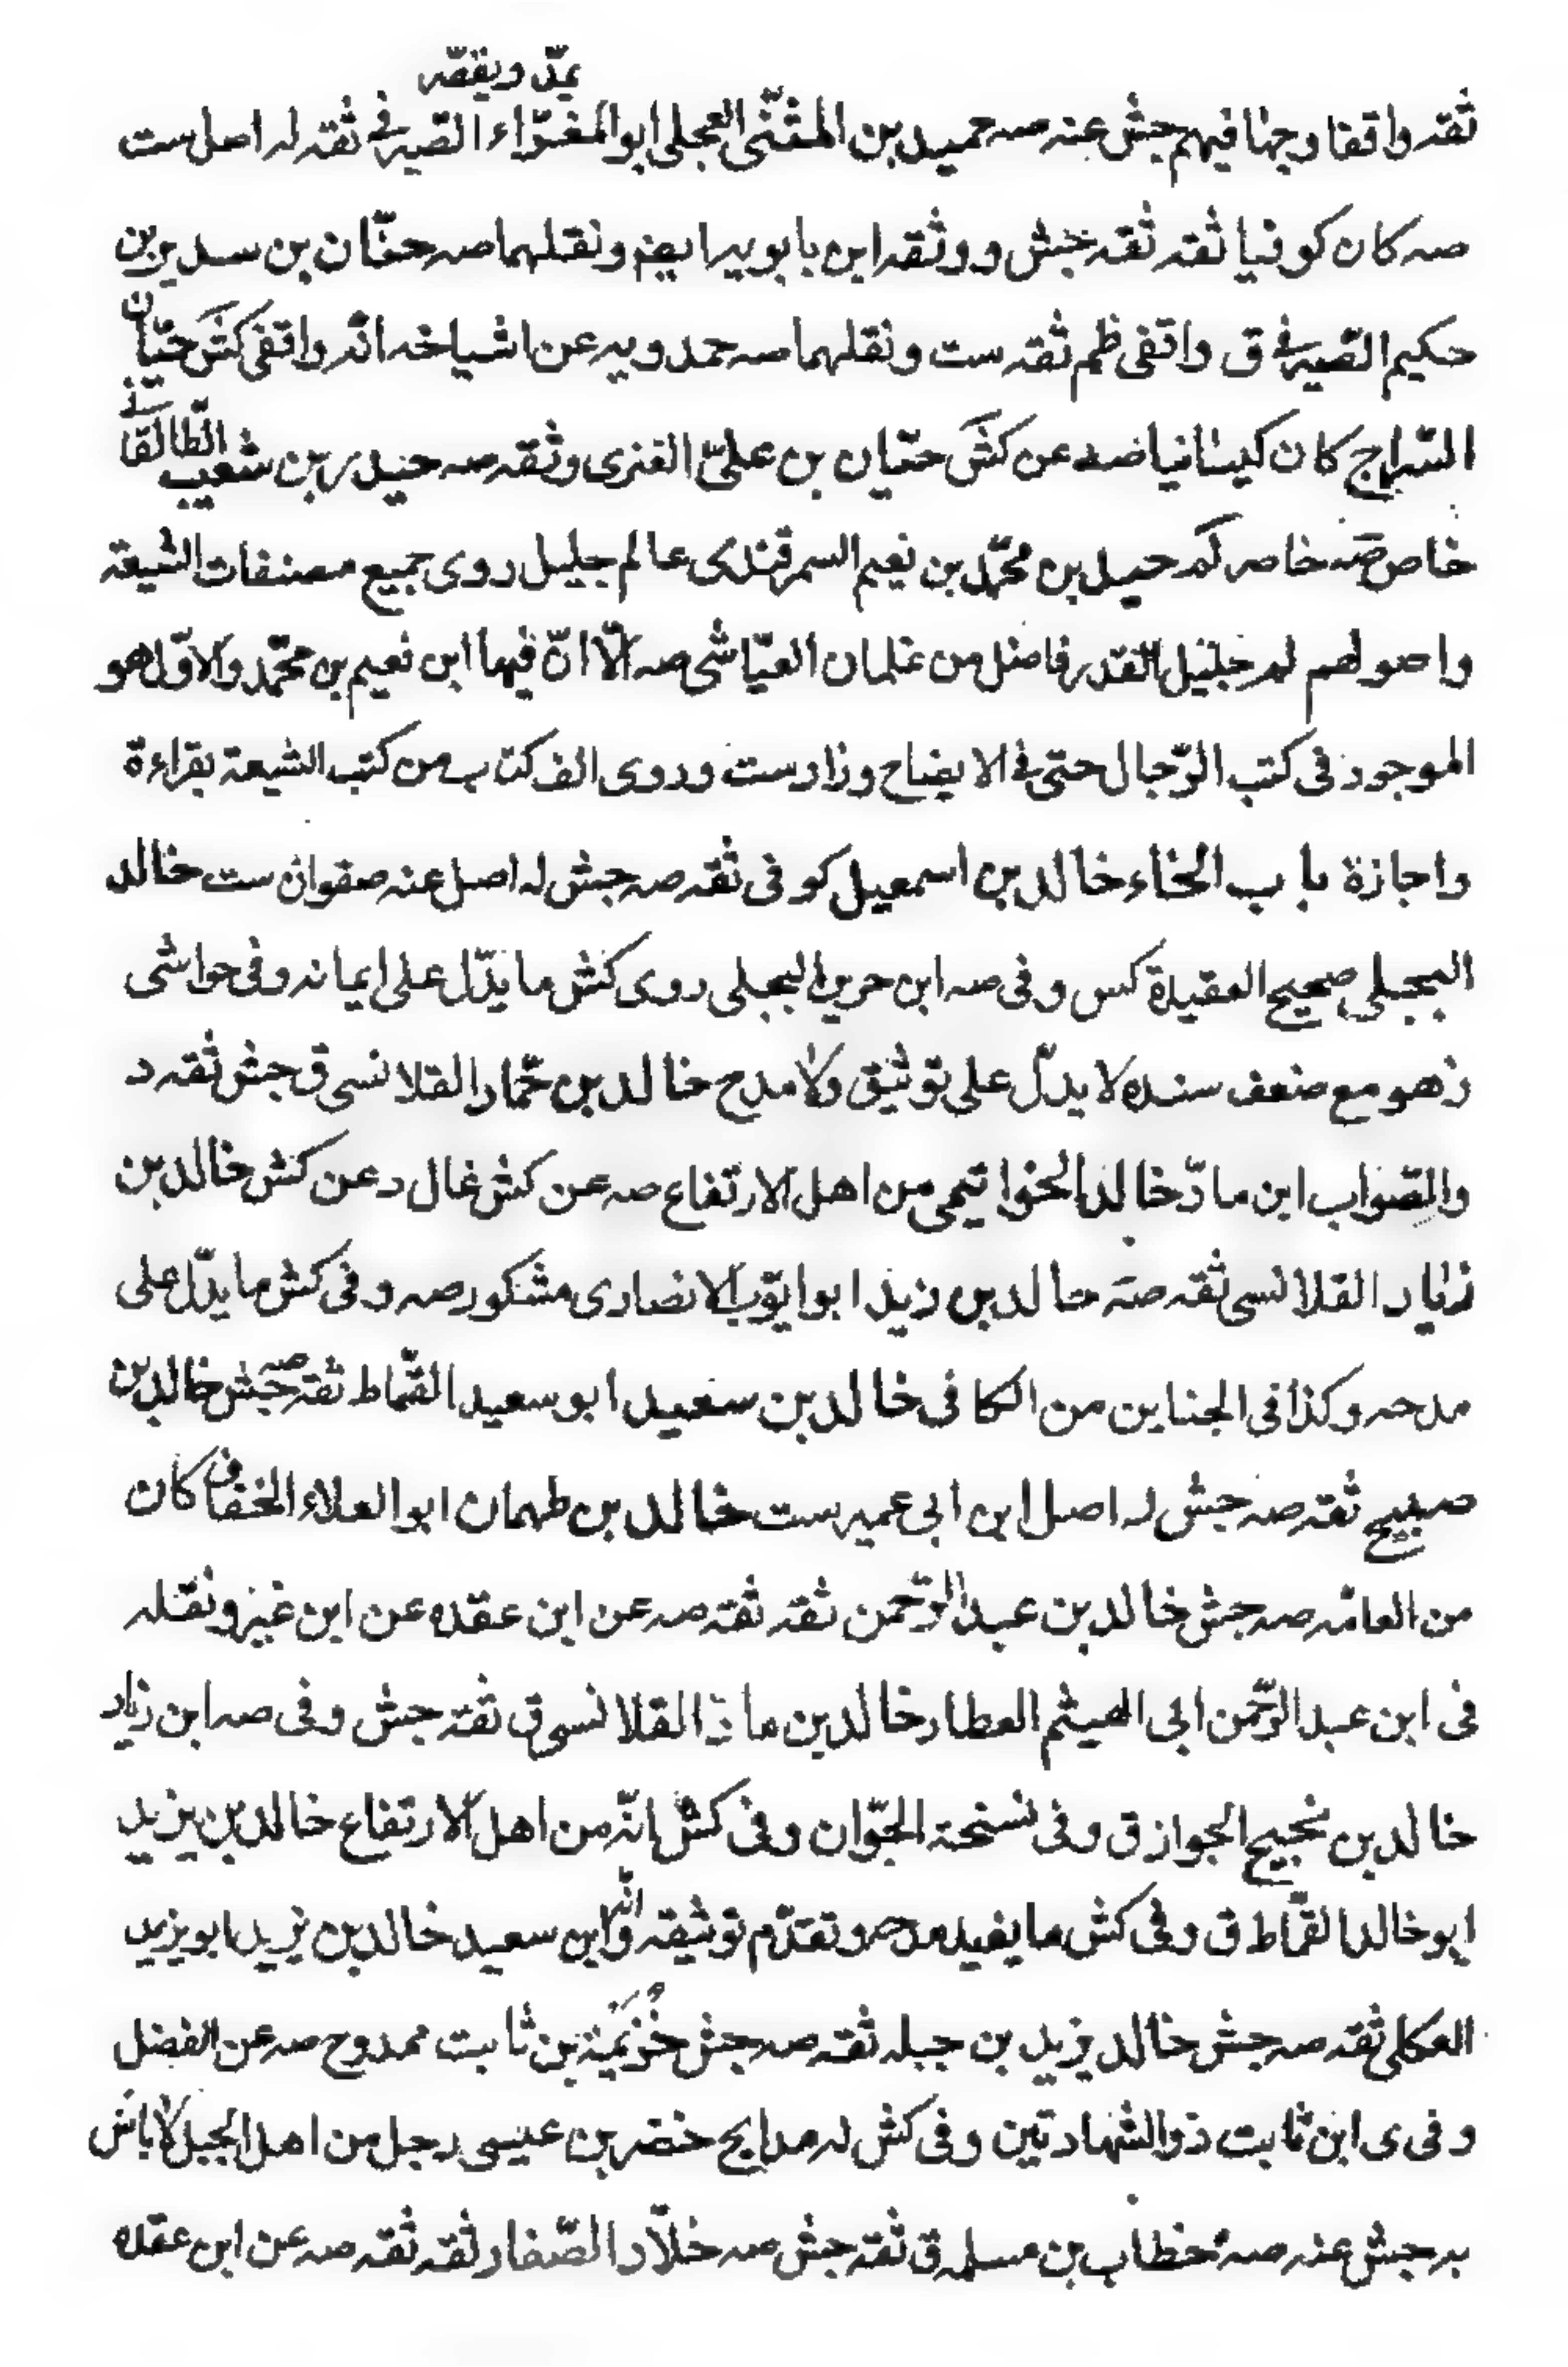 يمدّ ويقصر
ثقه واقفا وجها فيهم جش عنه صه حميد بن المثنّى العجلى ابو المغراء الصيرفى ثقه له اصل ست
صه كان كوفيا ثقه ثقه جش ووثقه ابن بابويه ايضا ونقلهما صه حنّان بن سدير بن
حكيم الصيرفى ق واقفى ظم ثقه ست ونقلهما صه حمدويه عن اشياخه انّه واقفى كش حيّان
السّراج كان كيسانيا صه عن كش حيّان بن علىّ العنزى وثقه صه حيدر بن شعيب الطالقانى
خاص صه خاصه لم حيدر بن محمّد بن نعيم السمرقندى عالم جليل روى جميع مصنفات الشيعة
واصولهم لم جليل القدر فاضل من غلمان العيّاشى صه الّا انّ فيها ابن نعيم بن محمّد والاوّل هو
الموجود فى كتب الرّجال حتى فى الايضاح وزاد ست وروى الف كتاب من كتب الشيعة بقراءة
واجازة باب الخاء خالد بن اسمعيل كوفى ثقه صه جش له اصل عنه صفوان ست خالد
البجلى صحيح العقيدة كس وفى صه ابن جرير البجلى روى كش ما يدّل على ايمانه وفى حواشى
ز هو مع ضعف سنده لا يدلّ على توثيق ولا مدح خالد بن حمّاد القلانسى ق جش ثقه د
والصواب ابن مادّ خالد الخواتيمى من اهل الارتفاع صه عن كش غال د عن كش خالد بن
زياد القلانسى ثقه صه خالد بن زيد ابو ايّوب الانصارى مشكور صه وفى كش ما يدّل على
مدحه وكذا فى الجنايز من الكافى خالد بن سعيد ابو سعيد القمّاط ثقه صه جش خالد بن
صبيح ثقه صه جش له اصل ابن ابى عمير ست خالد بن طهمان ابو العلاء الخفاف كان
من العامّه صه جش خالد بن عبد الرّحمن ثقه ثقه صه عن ابن عقده عن ابن نمير ونقله
فى ابن عبد الرّحمن ابى الهيثم العطار خالد بن ماذ القلانسى ق ثقه جش وفى صه ابن زياد
خالد بن نجيح الجواز ق وفى نسخة الجوّان وفى كش انّه من اهل الارتفاع خالد بن يزيد
ابو خالد القمّاط ق وفى كش ما يفيد مدحه وتقدّم توثيقه وانّه ابن سعيد خالد بن يزيد ابو يزيد
العكلى ثقه صه جش خالد يزيد بن جبله ثقه صه جش خُزَيمَة بن ثابت ممدوح صه عن الفضل
وفى ى ابن ثابت ذو الشهادتين وفى كش له مدايح خضر بن عيسى رجل من اهل الجبل لا باس
به جش عنه صه خطاب بن مسلمه ق ثقه جش صه خلّاد الصّفار ثقه ثقه صه عن ابن عقده